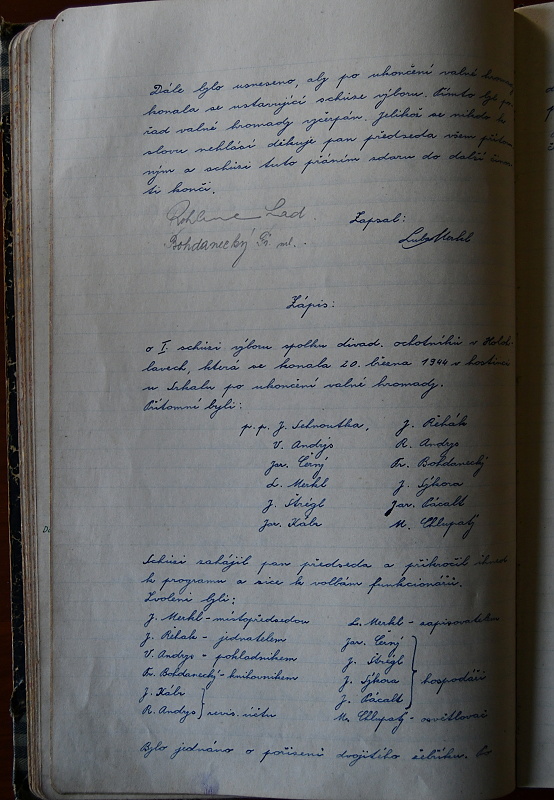 Dále bylo usneseno, aby po ukončení valné
konala se ustavující schůze výboru. Tímto byl
řad valné hromady vyčerpán. Jelikož se nikdo k
slovu nehlásí děkuje pan předseda všem
ným a schůzi tuto přáním zdaru do další
ti končí.
Lad. Zapsal:
Bohdanecký Fr. ml. Lub. Merkl
Zápis:
o I. schůzi výboru spolku divad. ochotníků v
lavech, která se konala 20. března 1944 v
u Srkala po ukončení valné hromady.
Přítomni byli:
p.p. J. Sehnoutka, J. Řehák
V. Andrys R. Andrys
Jar. Černý Fr. Bohdanecký
L. Merkl J. Sýkora
J. Štrégl Jar. Pácalt
Jar. Kábr M. Chlupatý
Schůzi zahájil pan předseda a přikročil
k programu a sice k volbám funkcionářů.
Zvoleni byli:
J. Merkl - místopředsedou L. Merkl - zapisovatelem
J. Řehák - jednatelem Jar. Černý
V. Andrys - pokladníkem J. Štrégl
Fr. Bohdanecký - knihovníkem J. Sýkora hospodáři
J. Kábr J. Pácalt
R. Andrys revis. účtu M. Chlupatý - osvětlovač
Bylo jednáno o pořízení dvojitého žebříku.